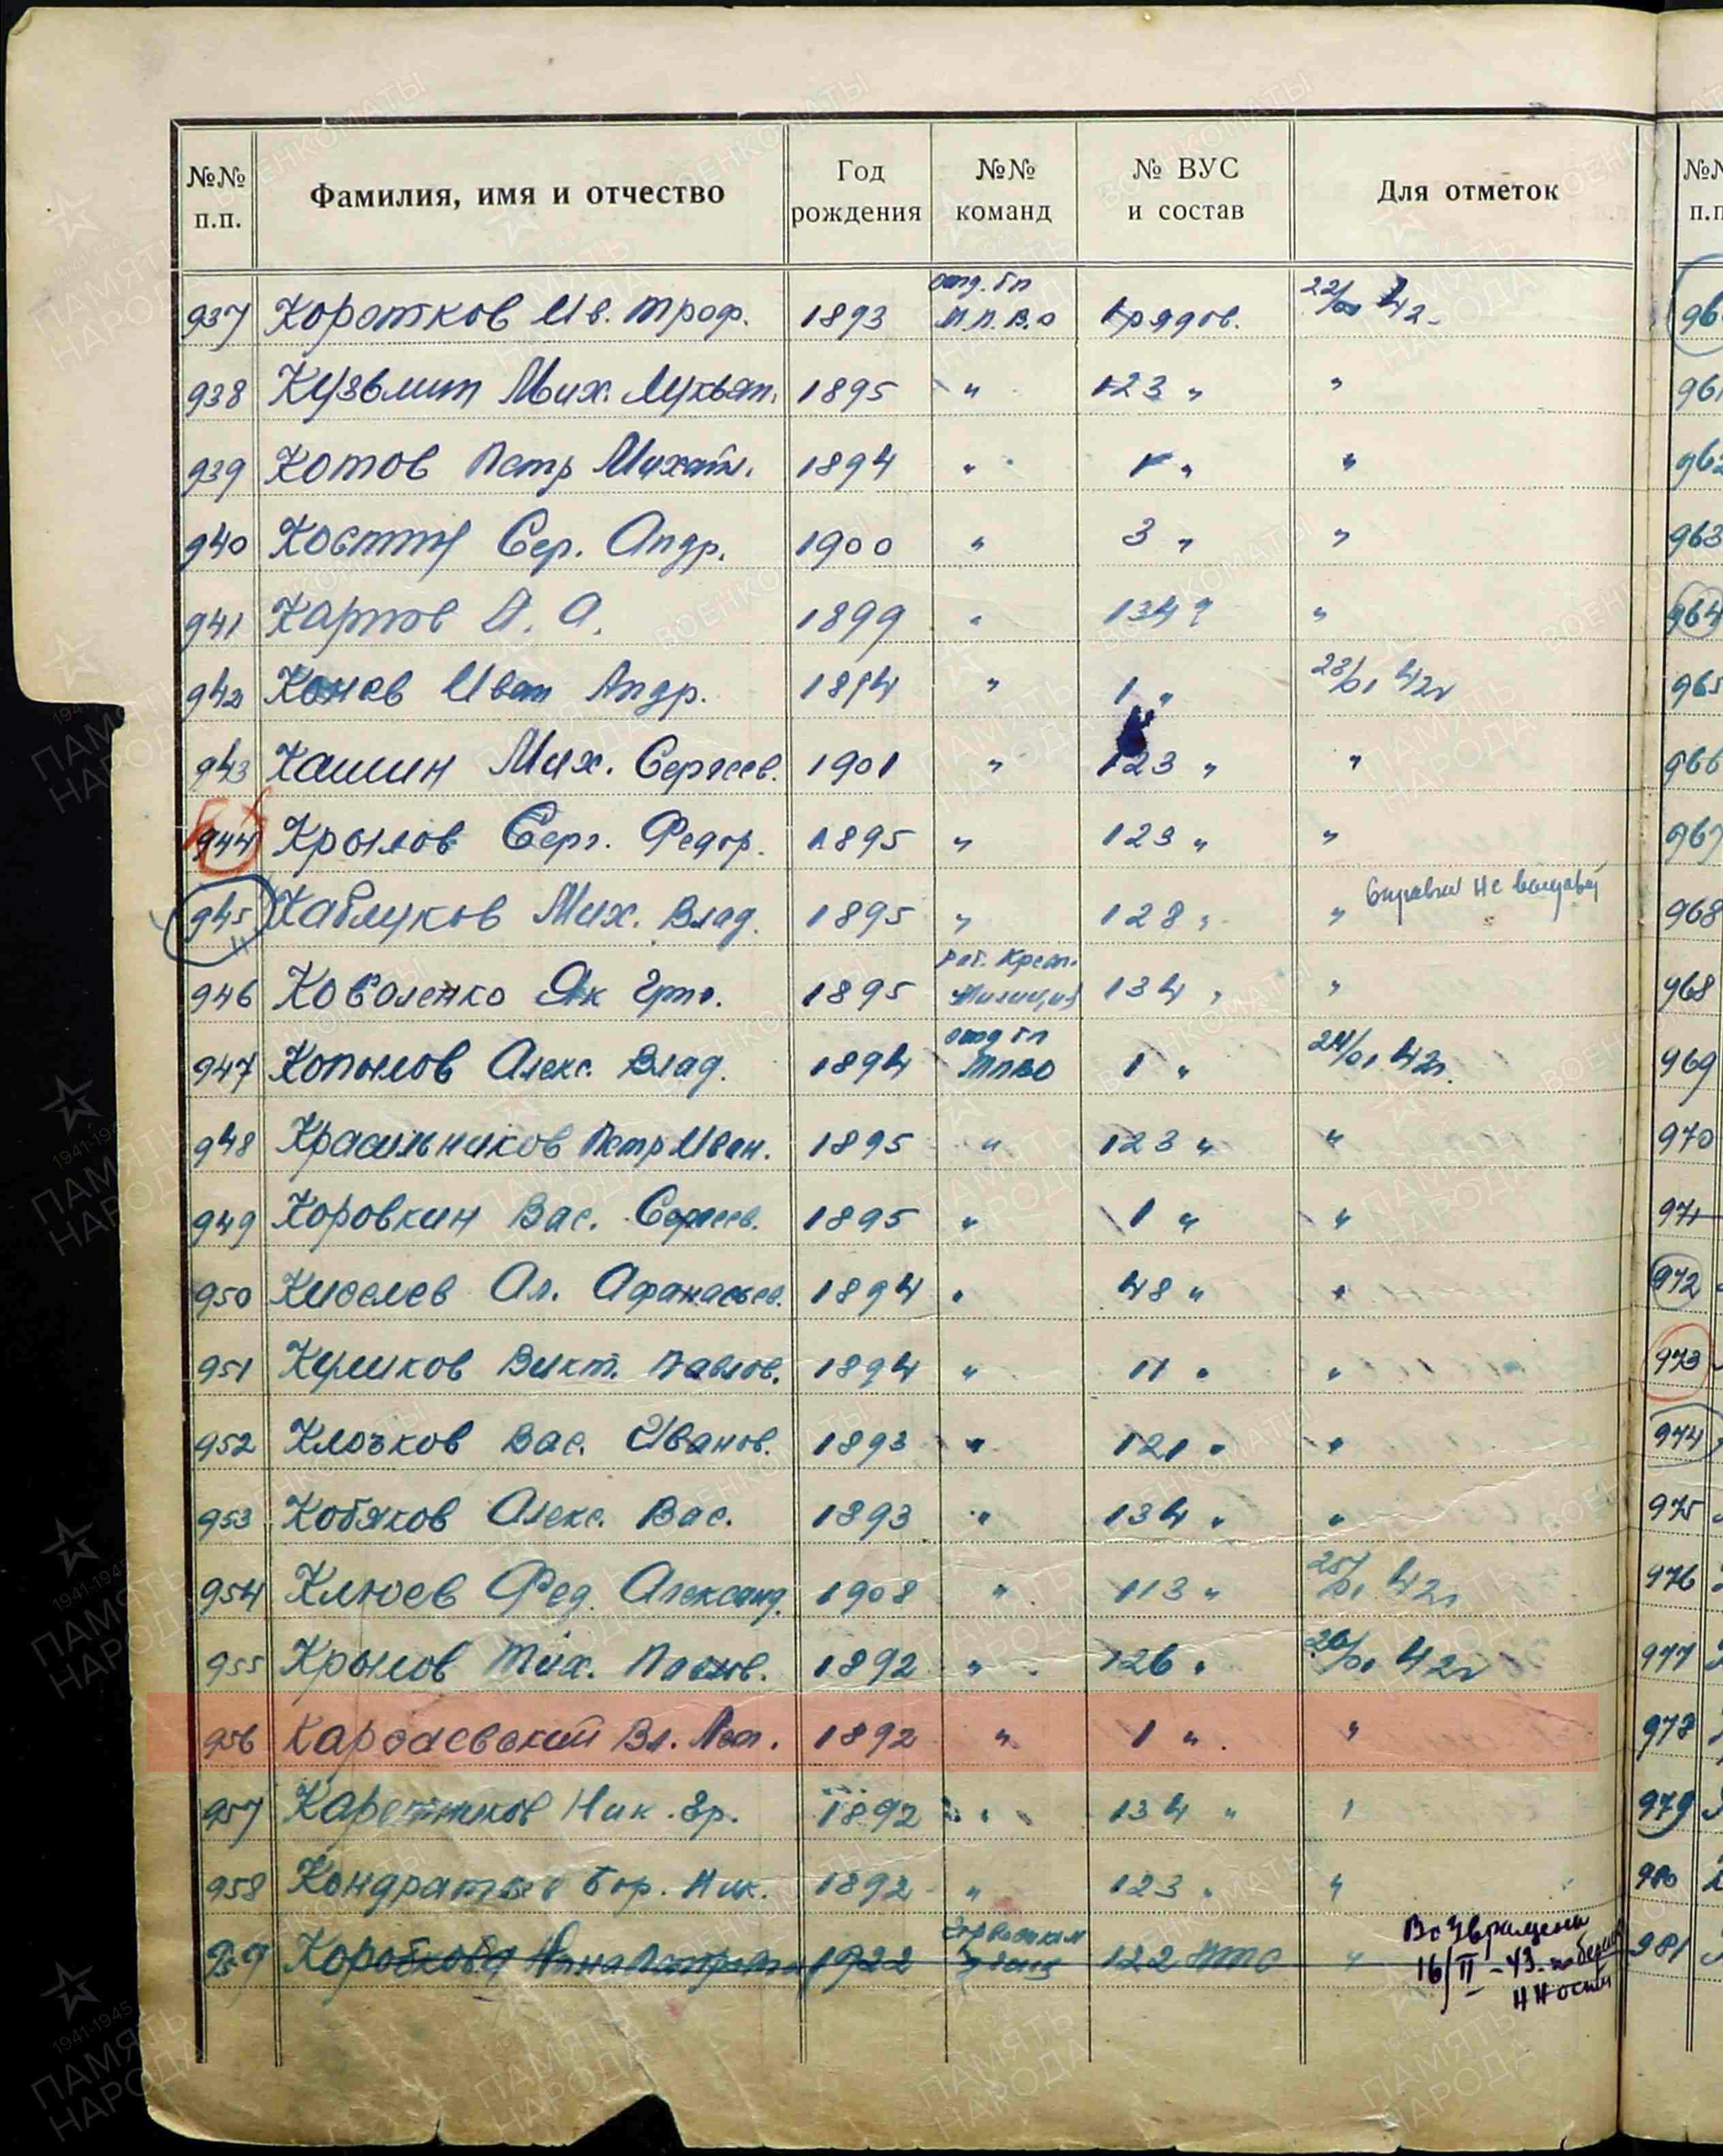 №№ п.п. Фамилия, имя и отчество Год рождения №№ команд № ВУС и состав Для отметок №№ п.п.
937 Коротков Ив. Троф. 1893 отд. бп М.П.В.О 1 рядов. 22/ 42
938 Кузьмин Мих. Лукьян. 1895 " 123 " "
939 Котов Петр Михайл. 1894 " 1 " " 962
940 Костин Сер. Андр. 1900 " 3 " " 963
941 Карпов А. А. 1899 " 134 " 964
942 Конов Иван Андр. 1894 " 1 " 23/01 42г 965
943 Кашин Мих. Сергеев. 1901 " 123 " " 966
944 Крылов Серг. Федор. 1895 " 123 " " 967
945 Каблуков Мих. Влад. 1895 " 128 " " Справки не 968
946 Коваленко Як Григ. 1895 милиция 134 " " 968
947 Копылов Алекс. Влад. 1894 отд бп МПВО 1 " 24/01 42г. 969
948 Красильников Петр Иван. 1895 " 123 " " 970
949 Коровкин Вас. Сергеев. 1895 " 1 " " 971
950 Киселев Ал. Афанасьев. 1894 " 48 " " 972
951 Куликов Викт. Павлов. 1894 " 11 " " 973
952 Клочков Вас. Иванов. 1893 " 121 " " 974
953 Кобяков Алекс. Вас. 1893 " 134 " " 975
954 Клюев Фед. Александ. 1908 " 113 " 25/01 42г 976
955 Крылов Мих. Павлов. 1892 " 126 " 26/01 42г 977
956 Вл. 1892 " 1 " " 978
957 Каретников Ник. Гр. 1892 " 134 " " 979
958 Кондратьев Бор. Ник. 1892 " 123 " " 980
959 Коробкова 1922 122 " Возвращена 981
16/II-43. по